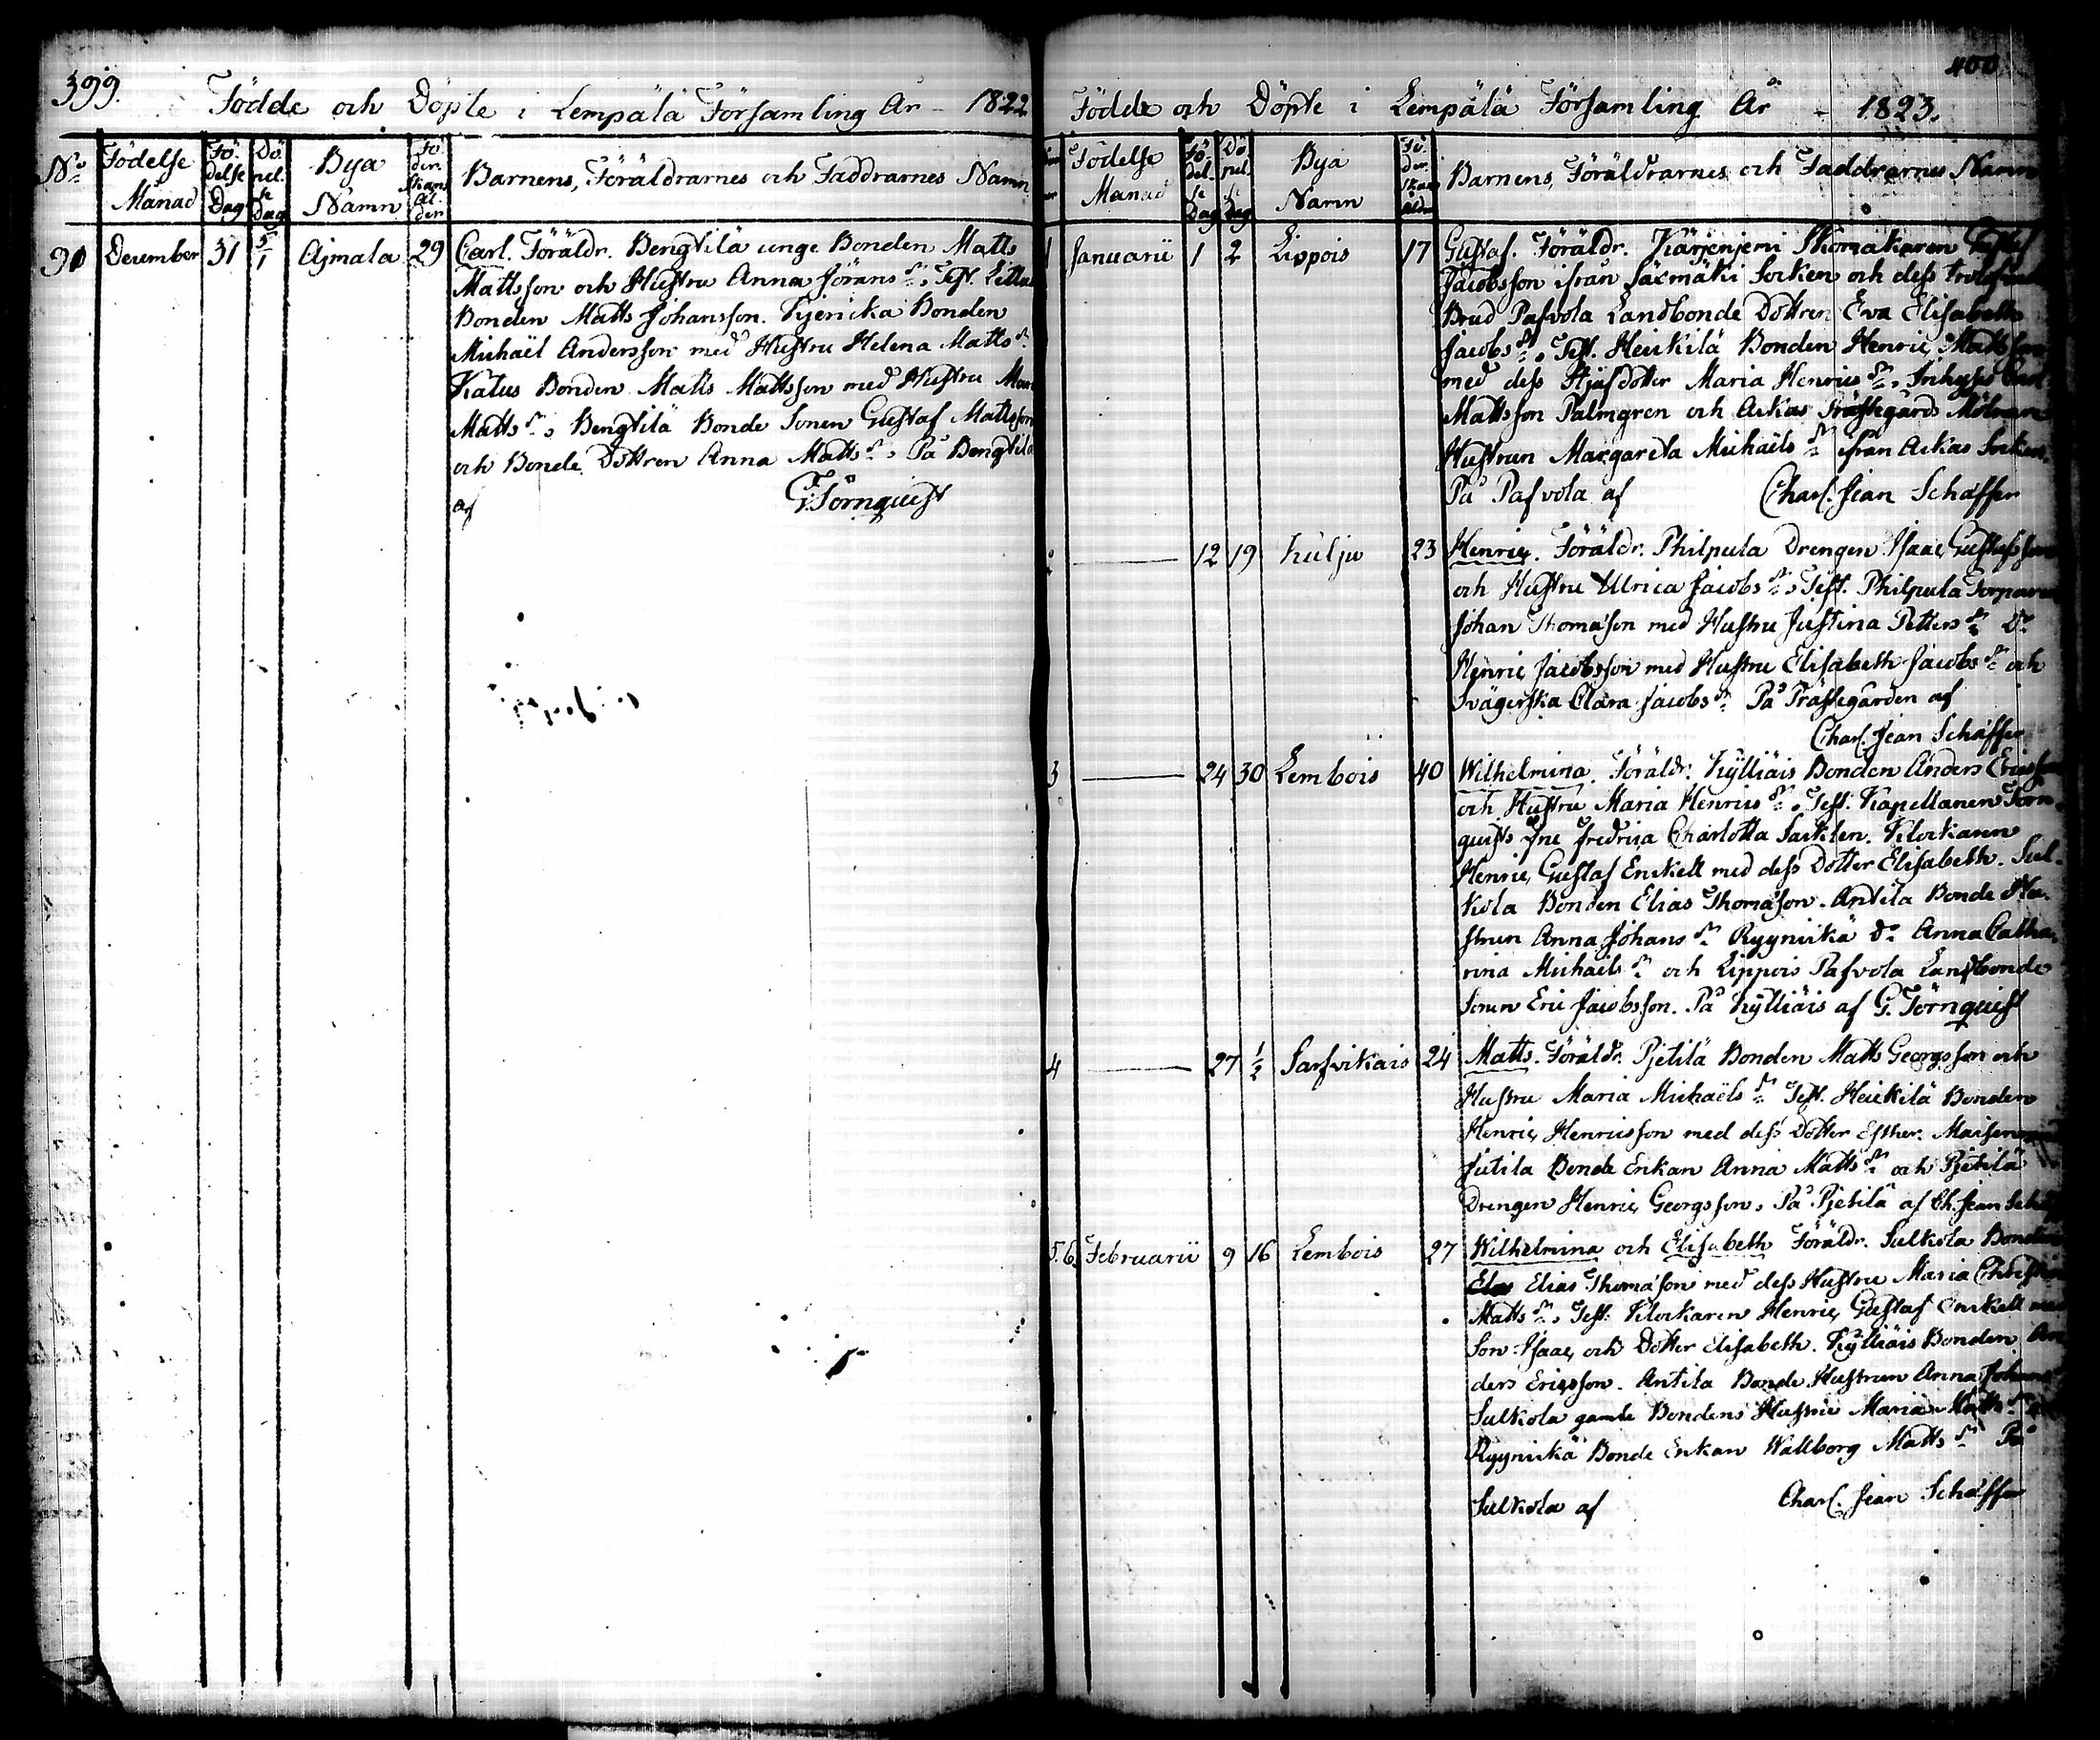 399.
Födde och Döpte i Lempälä Församling År 1822
No Födelse Månad Födelse Dag Döpelse Dag Bya Namn Föderskans Ålder Barnens, Föräldrarnes och Faddrarnes Namn
91 December 31 5/1 Ajmala 29 Carl. Föräldr. Bengtilä unge Bonden Matts
Mattsson och Hustru Anna Jörans dr. Test.
Bonden Matts Johansson. Bonden
Michaël Andersson med Hustru Helena Matts dr
Katus Bonden Matts Mattsson med Hustru
Matts dr, Bengtilä Bonde Sonen Gustaf Mattsson
och Bonde Dottren Anna Matts dr. På Bengtilä
af G. Törnquist
400
Födde och Döpte i Lempälä Församling År 1823.
Födelse Månad Födelse Dag Döpelse Dag Bya Namn Föderskans Ålder Barnens, Föräldrarnes och Faddrarnes Namn
1 Januarii 1 2 Lippois 17 Gustaf. Föräldr. Kärjenjemi Skomakaren
Jacobsson ifrån Säxmäki Socken och dess
Brud Pafvola Landbonde Dottren Eva Elisabeth
Jacobs dr. Test. Heikilä Bonden Henric Mattsson
med dess Styfdotter Maria Henrics dr. Inhyses
Mattsson Palmgren och Ackas Prästegårds
Hustrun Margareta Michaels dr ifrån Ackas Socken.
På Pafvola af Charl. Jean Schäffer
2 12 19 Kulju 23 Henric. Föräldr. Philpula Drengen Isaac Gustafsson
och Hustru Ulrica Jacobs dr. Test. Philpula Torparen
Johan Thomasson med Hustru Justina Petters dr Do
Henric Jacobsson med Hustru Elisabeth Jacobs dr och
Svägerska Clara Jacobs dr På Prästegården af
Charl. Jean Schäffer
3 24 30 Lembois 40 Wilhelmina. Föräldr. Kylliäis Bonden Anders Ericsson
och Hustru Maria Henrics dr. Test. Kapellanen Törn-
quists Fru Fredrica Charlotta Sacklen. Klockaren
Henric Gustaf Enckell med dess Dotter Elisabeth. Sul-
kola Bonden Elias Thomasson. Antila Bonde Hu-
strun Anna Johans dr Ryynikä Do Anna Catha-
rina Michaels dr och Lippois Pafvola Landbonde
Sonen Eric Jacobsson. På Kylliäis af G. Törnquist
4 27 1/2 Sarfvikais 24 Matts. Föräldr. Pjetilä Bonden Matts Georgsson och
Hustru Maria Michaëls dr Test. Heikilä Bonden
Henric Henricsson med dess Dotter Esther.
Jutila Bonde Enkan Anna Matts dr och Pjetilä
Drengen Henric Georgsson. På Pjetilä af Ch. Jean
5.6. Februarii 9 16 Lembois 27 Wilhelmina och Elisabeth Föräldr. Sulkola Bonden
Elias Thomasson med dess Hustru Maria Christina
Matts dr. Test. Klockaren Henric Gustaf Enckell med
Son Isaac och Dotter Elisabeth. Kylliäis Bonden An
ders Ericsson. Antila Bonde Hustrun Anna Johans
Sulkola gamle Bondens Hustru Maria Matts dr
Ryynikä Bonde Enkan Wallborg Matts dr På
Sulkola af Charl. Jean Schäffer